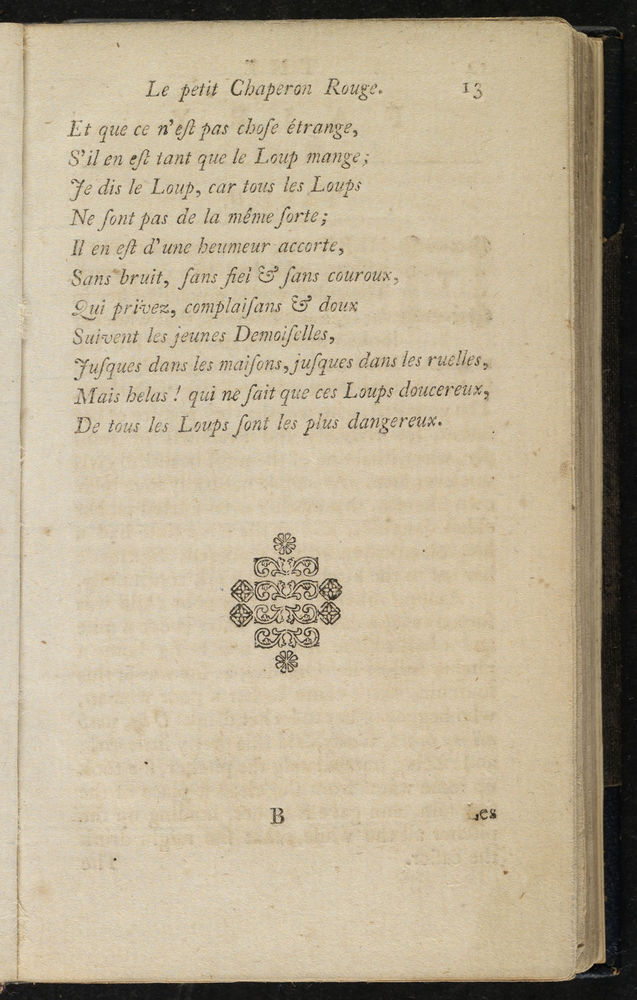 Le petit Chaperon Rouge. 13
Et que ce n'eſt pas choſe étrange,
S'il en eſt tant que le Loup mange;
Je dis le Loup, car tous les Loups
Ne ſont pas de la même ſorte;
Il en eſt d'une heumeur accorte,
Sans bruit, ſans fiel & ſans couroux,
Qui privez, complaiſans & doux
Suivent les jeunes Demoiſelles,
Juſques dans les maiſons, juſques dans les ruelles,
Mais helas ! qui ne ſait que ces Loups doucereux,
De tous les Loups ſont les plus dangereux.
B Les